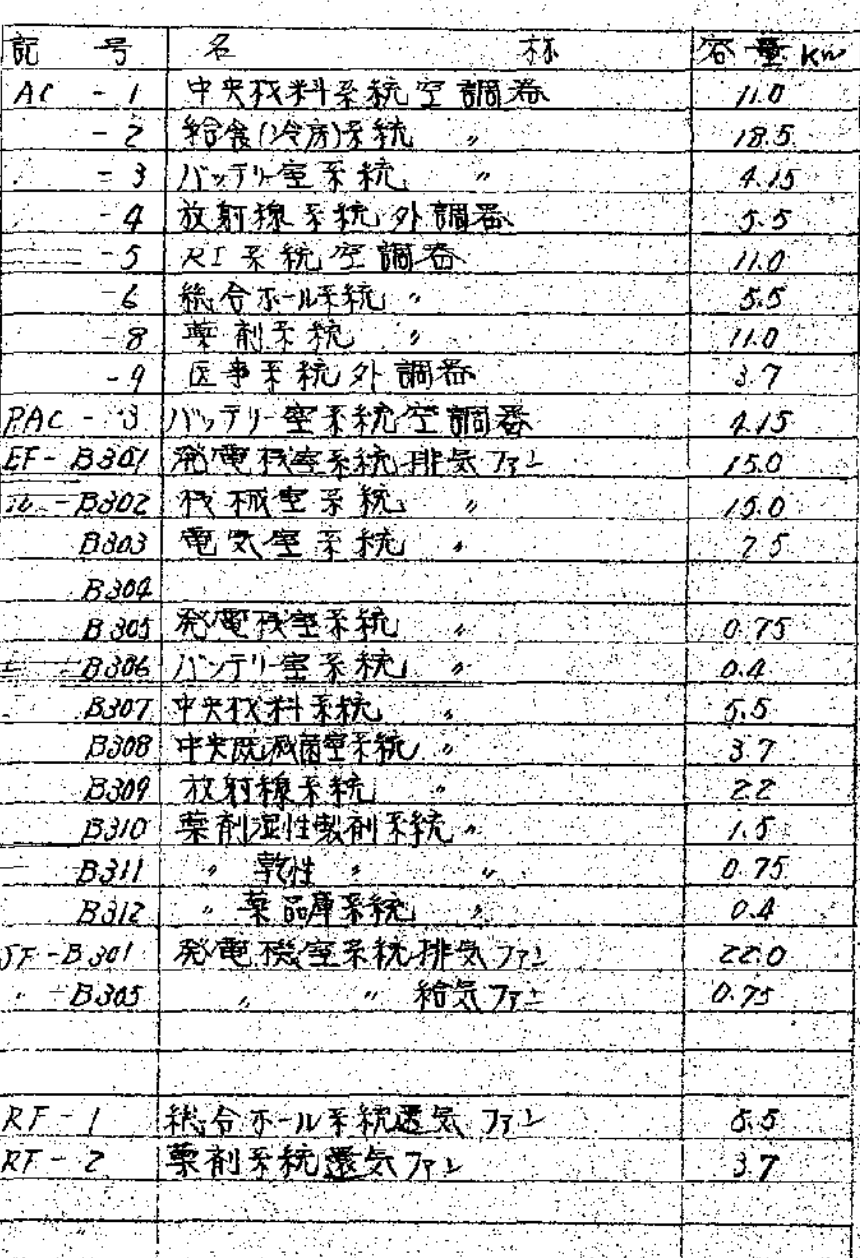 記 号 名 称 容量 Kw
AC - 1 中央材料系統空調器 11.0
- 2 給食(冷房)系統 〃 18.5
- 3 バッテリー室系統 〃 4.15
- 4 放射線系統外調器 5.5
- 5 RI系統空調器 11.0
- 6 総合ホール系統 〃 5.5
- 8 薬剤系統 〃 11.0
- 9 医事系統外調器 3.7
PAC - 3 バッテリー室系統空調器 4.15
EF - B301 発電機室系統排気ファン 15.0
- B302 機械室系統 〃 15.0
B303 電気室系統 〃 7.5
B304
B305 発電機室系統 〃 0.75
B306 バッテリー室系統 〃 0.4
B307 中央材料系統 〃 5.5
B308 中央既滅菌室系統 〃 3.7
B309 放射線系統 〃 22
B310 薬剤湿性製剤系統 〃 1.5
B311 〃 乾性 〃 〃 0.75
B312 〃 薬品庫系統 〃 0.4
SF - B301 発電機室系統排気ファン 22.0
〃 - B305 〃 〃 給気ファン 0.75
RF - 1 総合ホール系統還気ファン 5.5
RF - 2 薬剤系統還気ファン 3.7